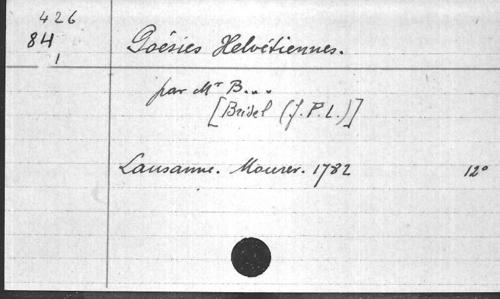 426
84
1
Poésies Helvétiennes.
par Mr B...
[Bridel (J.P.L.)]
Lausanne. Mourer. 1782 12°